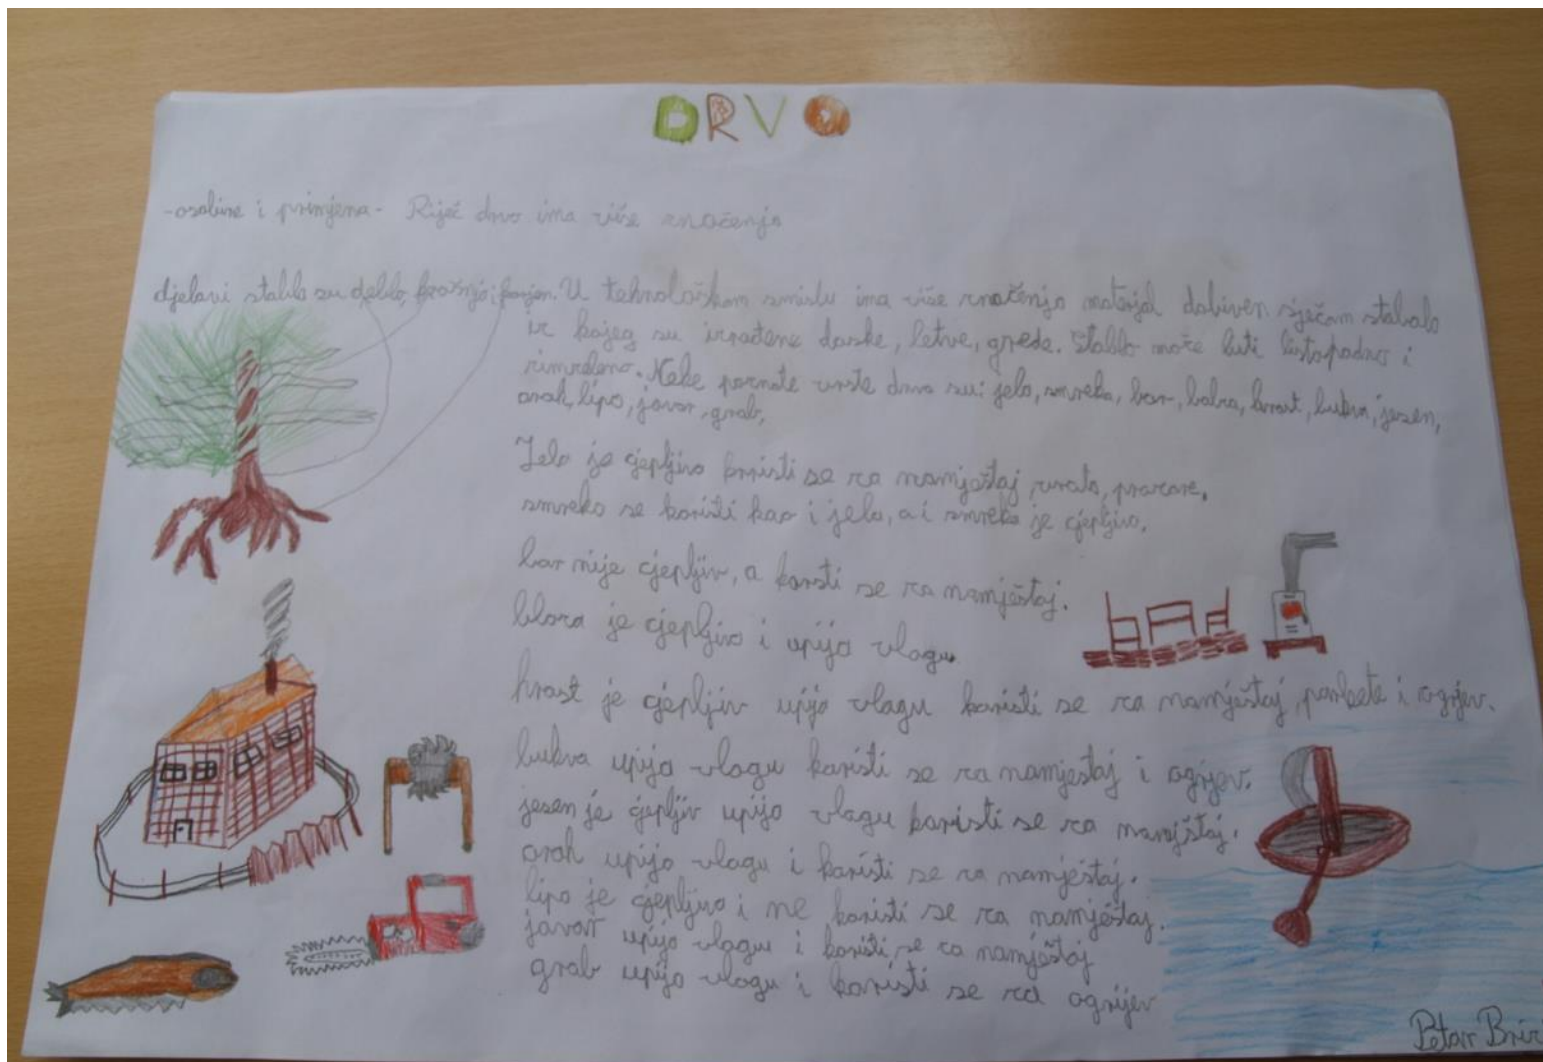 DRVO
-osobine i primjena- Riječ drvo ima više značenja
djelovi stabla su deblo, krošnja i korjen. U tehnološkom smislu ima više značenja materijal dobiven sječom stabala
iz kojeg su izrađene daske, letve, grede. Stablo može biti listopadno i
zimzeleno. Neke poznate vrste drva su: jela, smreka, bor, hrast, bukva, jesen,
orah, lipa, javor, grab,
Jela je cjepljiva koristi se za namještaj, vrata, prozore.
smreka se koristi kao i jela, a i smreka je cjepljiva.
bor nije cjepljiv, a koristi se za namještaj.
je cjepljiva i upija vlagu.
hrast je cjepljiv upija vlagu koristi se za namještaj, parkete i ogrjev.
bukva upija vlagu koristi se za namještaj i ogrijev.
jesen je cjepljiv upija vlagu koristi se za namještaj.
orah upija vlagu i koristi se za namještaj.
lipa je cjepljiva i ne koristi se za namještaj.
javor upija vlagu i koristi se za namještaj
grab upija vlagu i koristi se za ogrijev
Petar